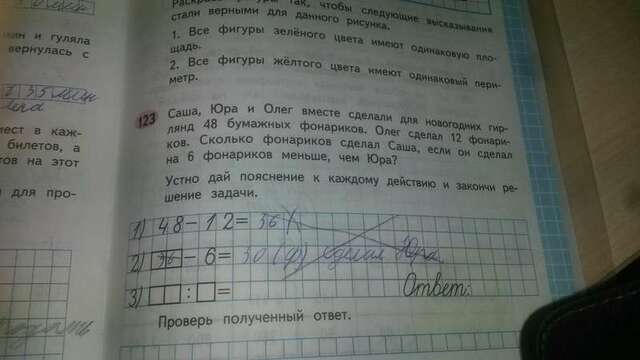 так, чтобы следующие высказывания
стали верными для данного рисунка.
1. Все фигуры зелёного цвета имеют одинаковую пло-
щадь.
2. Все фигуры жёлтого цвета имеют одинаковый пери-
метр.
и гуляла
вернулась с
в каж-
билетов, а
на этот
для про-
123 Саша, Юра и Олег вместе сделали для новогодних гир-
лянд 48 бумажных фонариков. Олег сделал 12 фонари-
ков. Сколько фонариков сделал Саша, если он сделал
на 6 фонариков меньше, чем Юра?
Устно дай пояснение к каждому действию и закончи ре-
шение задачи.
1) 48 - 12 = 36
2) 36 - 6 = 30 (ф) сделал Юра.
3) : =
Ответ:
Проверь полученный ответ.